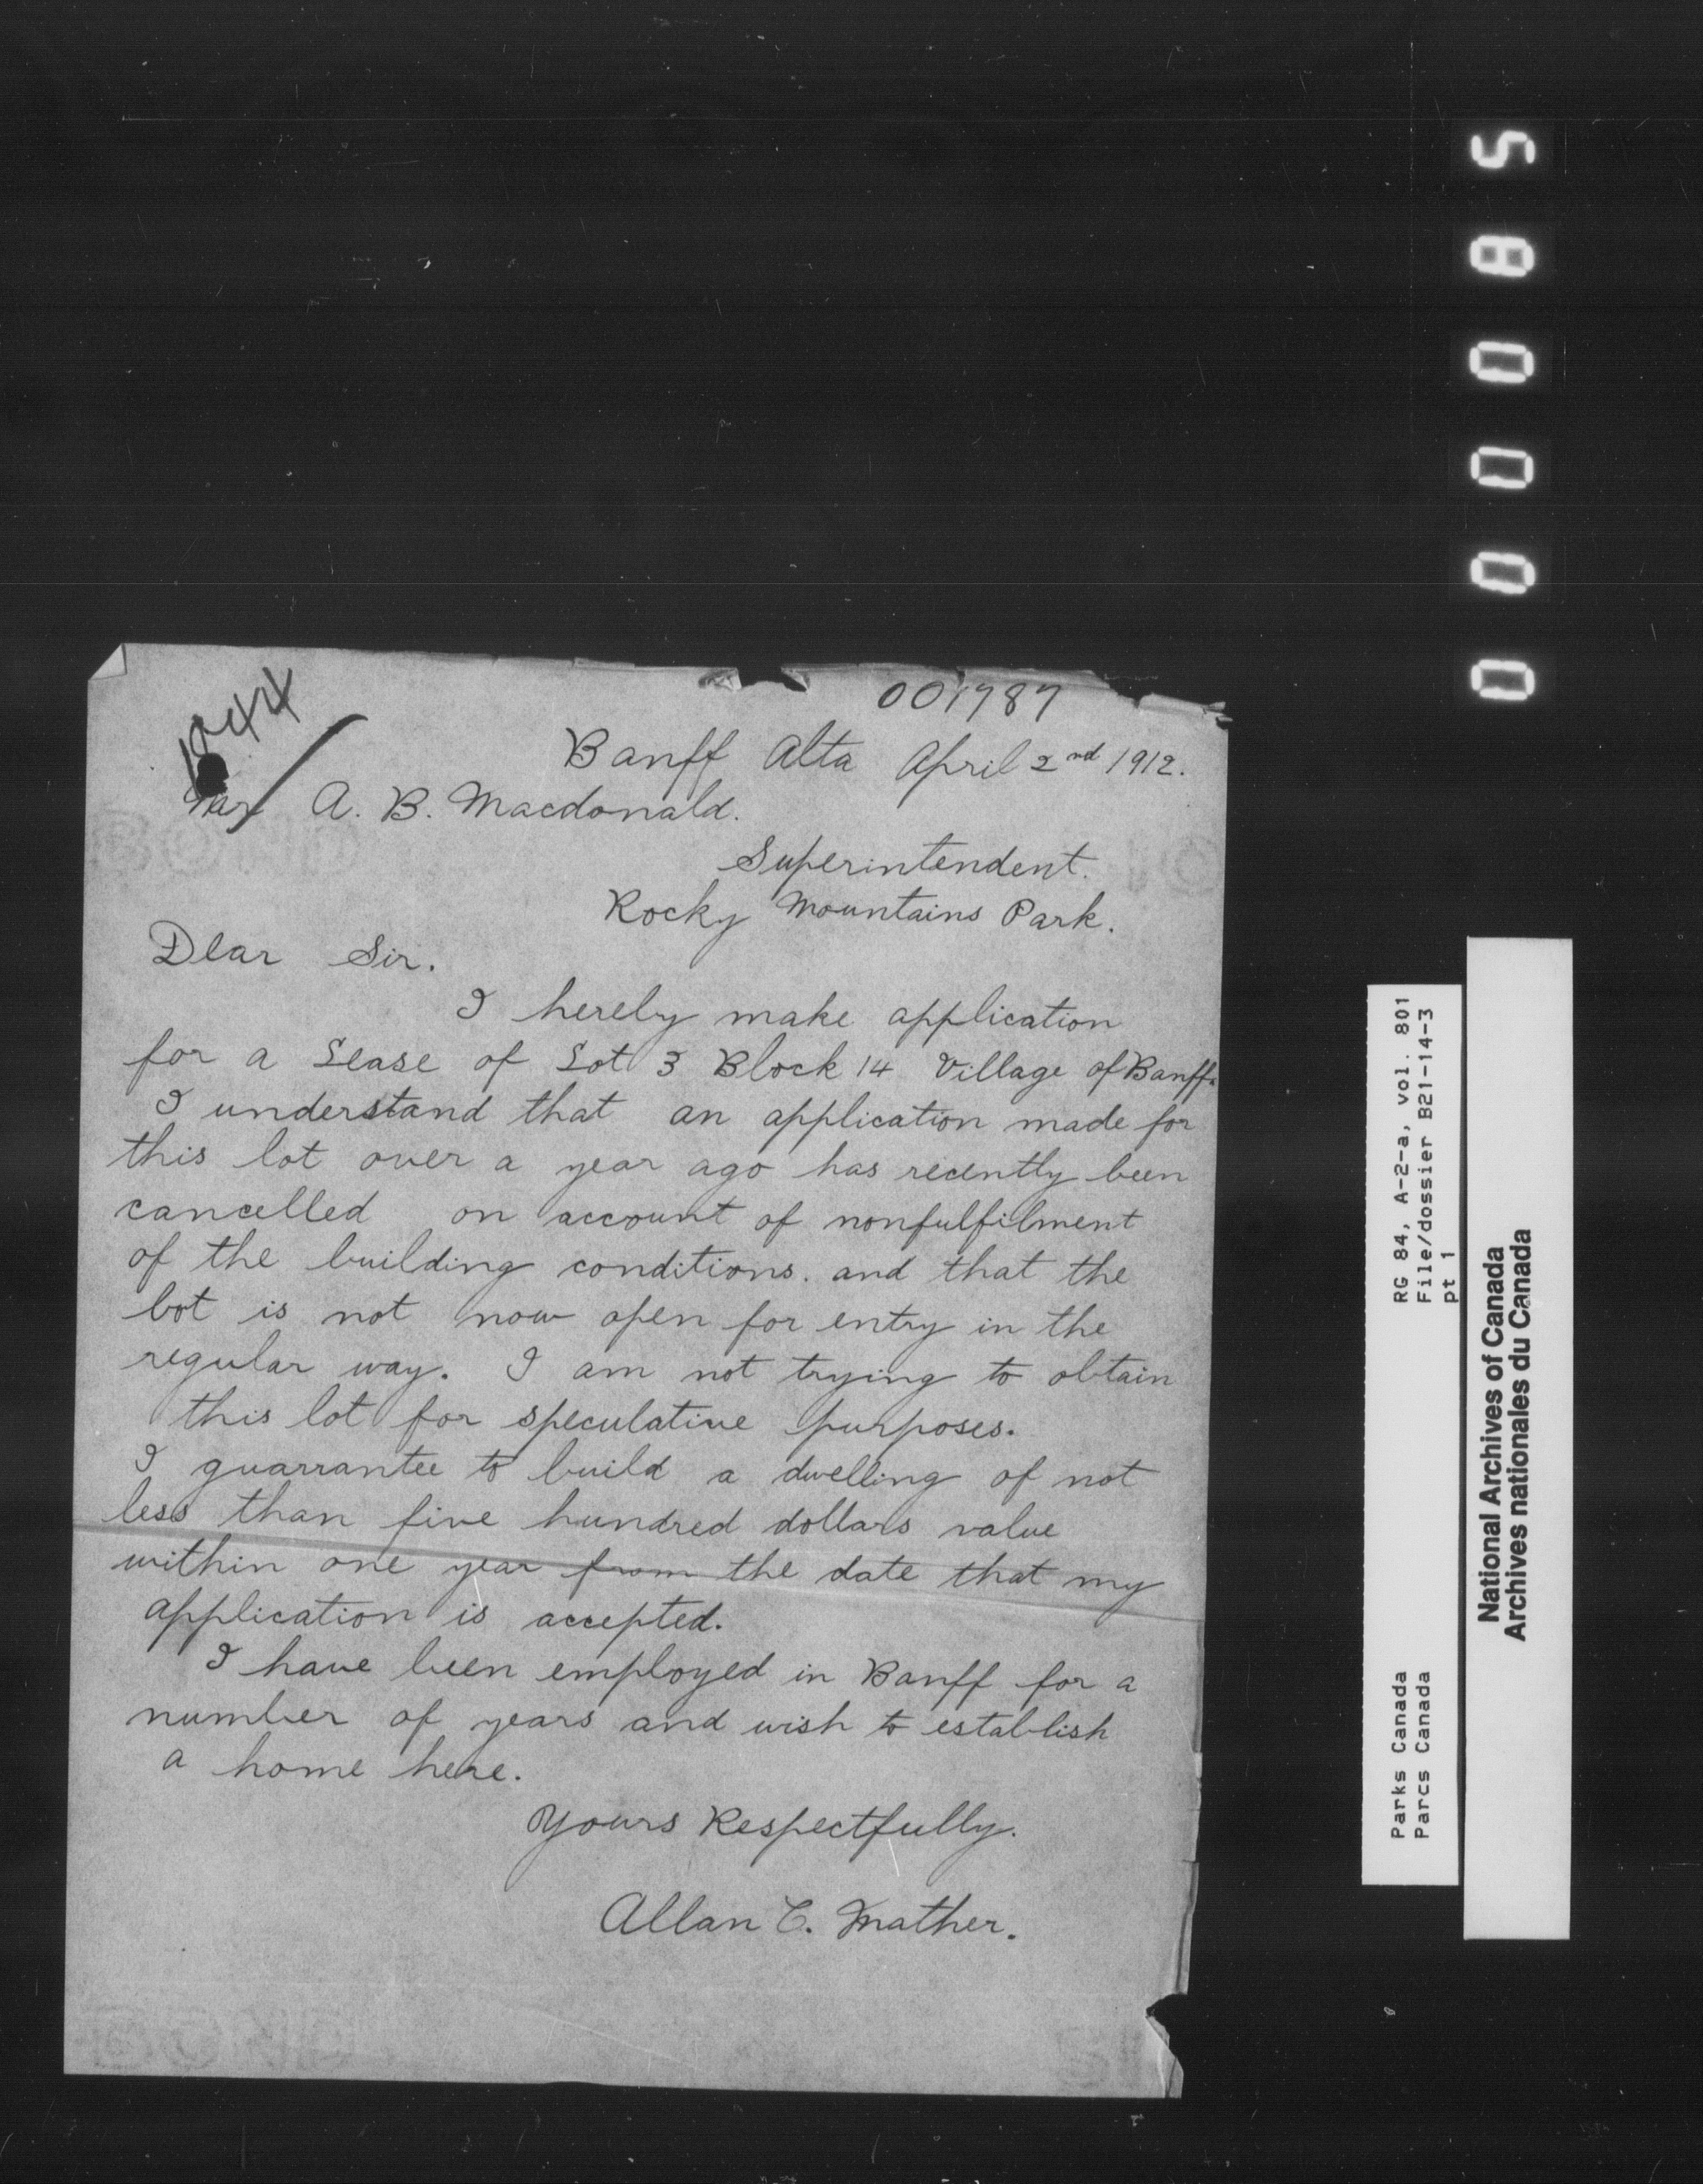 001787
Banff Alta April 2nd 1912.
Mr A. B. Macdonald.
Superintendent.
Rocky Mountains Park.
Dear Sir.
I hereby make application
for a Lease of Lot 3 Block 14 Village of Banff.
I understand that an application made for
this lot over a year ago has recently been
cancelled on account of nonfulfilment
of the building conditions. and that the
lot is not now open for entry in the
regular way. I am not trying to obtain
this lot for speculative purposes.
I guarrantee to build a dwelling of not
less than five hundred dollars value
within one year from the date that my
application is accepted.
I have been employed in Banff for a
number of years and wish to establish
a home here.
Yours Respectfully.
Allan C. Mather.
000085
RG 84, A-2-a, vol. 801
File/dossier B21-14-3
pt 1
Parks Canada
Parcs Canada
National Archives of Canada
Archives nationales du Canada